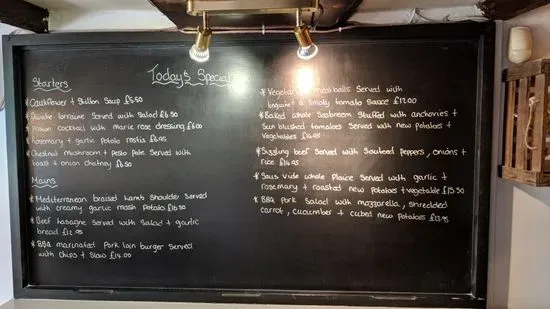 Today's Specials
Starters
* Cauliflower + Stilton Soup £5.50
* Quiche lorraine Served with Salad £6.50
* Prawn cocktail with marie rose dressing £6.00
* Rosemary + garlic potato rostis £6.95
* Chestnut mushroom + pesto pate Served with
toast + onion chutney £6.50
Mains
* Mediterranean braised Lamb Shoulder Served
with creamy garlic mash potato
* Beef lasagne Served with Salad + garlic
bread £12.95
* BBQ marinated Pork loin burger Served
with chips + Slaw £14.00
* Vegetarian meatballs Served with
linguine + a Smoky tomato Sauce £12.00
* Baked whole Seabream Stuffed with anchovies +
Sun blushed tomatoes Served with new potatoes +
vegetables £16.95
* Sizzling beef Served with Sauteed peppers, onions +
rice £14.95
* Sous vide whole Plaice Served with garlic +
rosemary + roasted new potatoes + vegetable £15.50
* BBQ Pork Salad with mozzarella, shredded
carrot, cucumber + cubed new potatoes £13.95